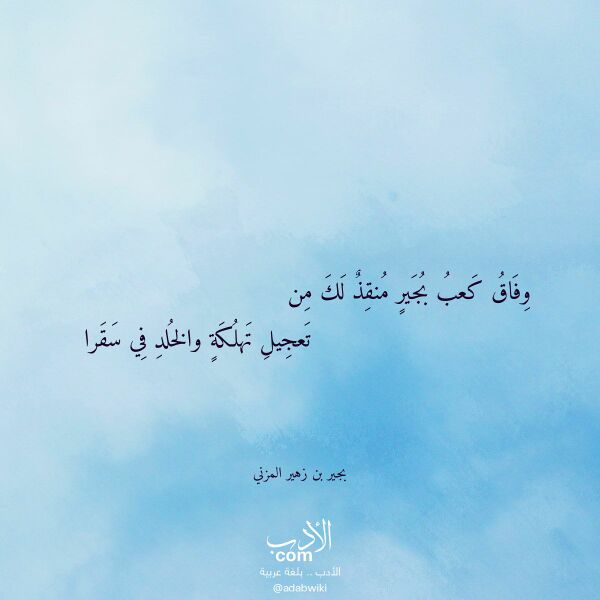 وِفَاقُ كَعبُ بُجَيرٍ مُنقِذٌ لَكَ مِن
تَعجِيلِ تَهلُكَةٍ والخُلدِ فِي سَقَرا
بجير بن زهير المزني
الأدب
com
الأدب .. بلغة عربية
@adabwiki